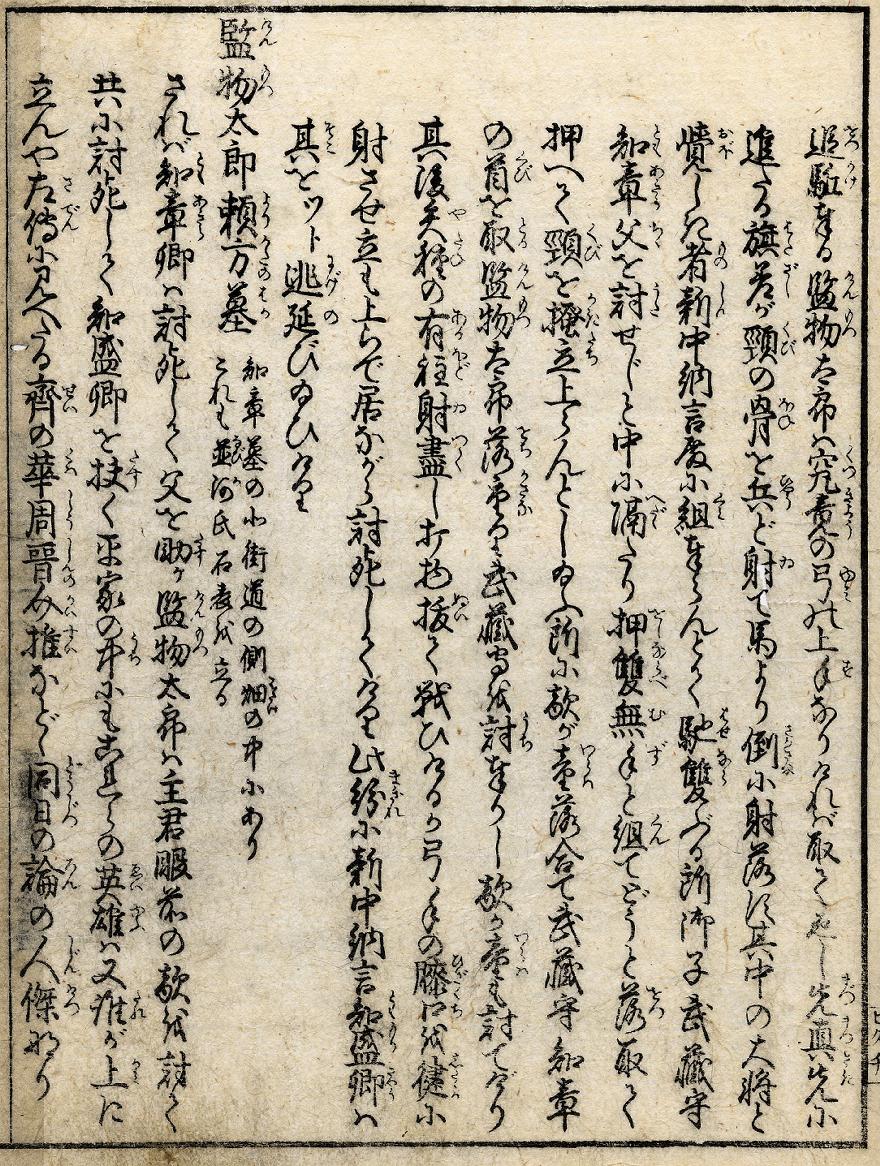 追駈奉る監物太郎ハ究竟の弓の上手なりけれバ取て返し先真先に
進たる旗差が頸の骨を兵ど射て馬より倒に射落す其中の大将と
覚しき者新中納言殿に組奉らんとて馳雙ぶる所御子武藏守
知章父を討せじと中に隔たり押雙無手と組てどうと落取て
押へて頸を掻立上らんとし給ふ所に敵が童落合て武藏守知章
の首を取監物太郎落重りて武藏守を討奉りし敵が童も討てげり
其後矢種の有程射盡し打物抜て戦ひけるが弓手の膝口を健に
射させ立も上らで居ながら討死してけり此紛に新中納言知盛卿ハ
其をツト逃延び給ひけり
監物太郎頼方墓 知章墓の北街道の側畑の中にあり
これも並河氏石表を立る
されバ知章卿ハ討死して父を助け監物太郎ハ主君眼前の敵を討て
共に討死して知盛卿を扶く平家の中にもこれらの英雄ハ又誰が上に
立んや左傳に見へたる齊の華周晋の介推などゝ同日の論の人傑なり